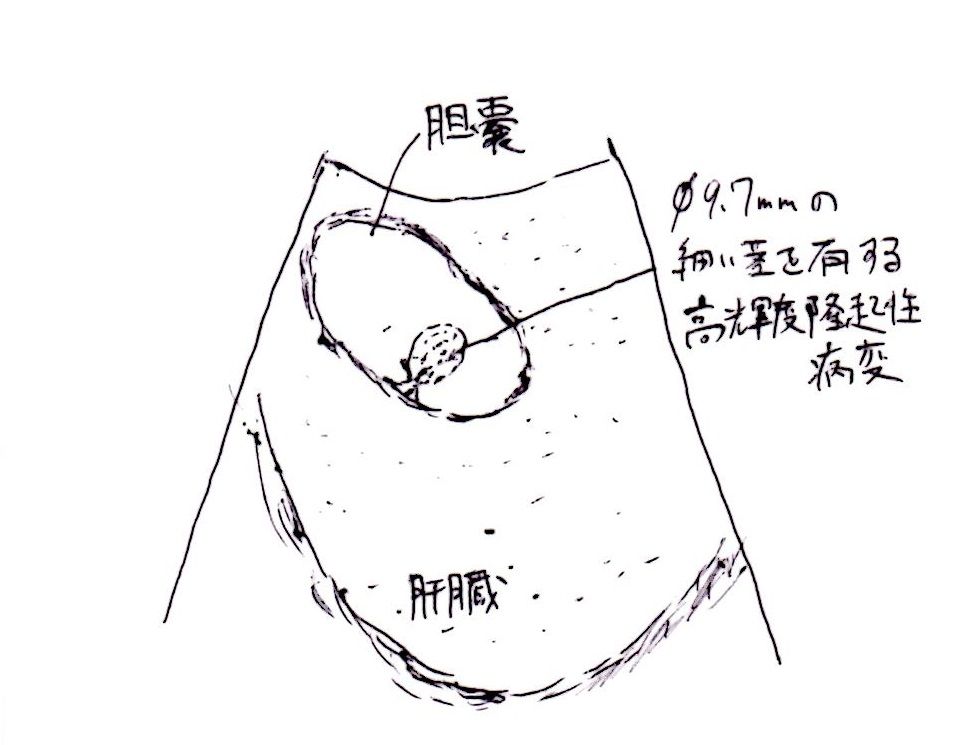 胆嚢
φ9.7mmの
細い茎を有する
高輝度隆起性
病変
肝臓